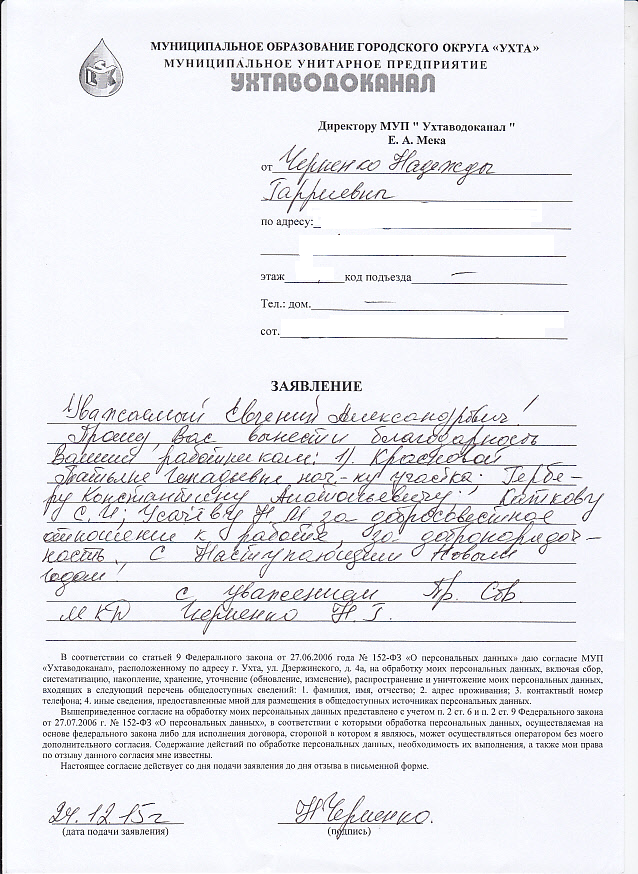 МУНИЦИПАЛЬНОЕ ОБРАЗОВАНИЕ ГОРОДСКОГО ОКРУГА «УХТА»
МУНИЦИПАЛЬНОЕ УНИТАРНОЕ ПРЕДПРИЯТИЕ
УХТАВОДОКАНАЛ
Директору МУП " Ухтаводоканал "
Е. А. Мека
от Черненко Надежды
Гарриевны
по адресу:
этаж код подъезда —
Тел.: дом. —
сот.
ЗАЯВЛЕНИЕ
Уважаемый Евгений Александрович!
Прошу Вас вынести благодарность
Вашим работникам: 1). Красновой
Татьяне Генадьевне нач.-ку участка; Гербе-
ру Константину Анатольевичу; Каткову
С. И; Усачёву Н М за добросовестное
отношение к работе, за добропорядоч-
ность, С Наступающим Новым
годом!
С уважением Пр. Сов.
МКД Черненко Н. Г.
В соответствии со статьей 9 Федерального закона от 27.06.2006 года № 152-ФЗ «О персональных данных» даю согласие МУП
«Ухтаводоканал», расположенному по адресу г. Ухта, ул. Дзержинского, д. 4а, на обработку моих персональных данных, включая сбор,
систематизацию, накопление, хранение, уточнение (обновление, изменение), распространение и уничтожение моих персональных данных,
входящих в следующий перечень общедоступных сведений: 1. фамилия, имя, отчество; 2. адрес проживания; 3. контактный номер
телефона; 4. иные сведения, предоставленные мной для размещения в общедоступных источниках персональных данных.
Вышеприведенное согласие на обработку моих персональных данных представлено с учетом п. 2 ст. 6 и п. 2 ст. 9 Федерального закона
от 27.07.2006 г. № 152-ФЗ «О персональных данных», в соответствии с которыми обработка персональных данных, осуществляемая на
основе федерального закона либо для исполнения договора, стороной в котором я являюсь, может осуществляться оператором без моего
дополнительного согласия. Содержание действий по обработке персональных данных, необходимость их выполнения, а также мои права
по отзыву данного согласия мне известны.
Настоящее согласие действует со дня подачи заявления до дня отзыва в письменной форме.
24.12.15г НЧерненко.
(дата подачи заявления) (подпись)